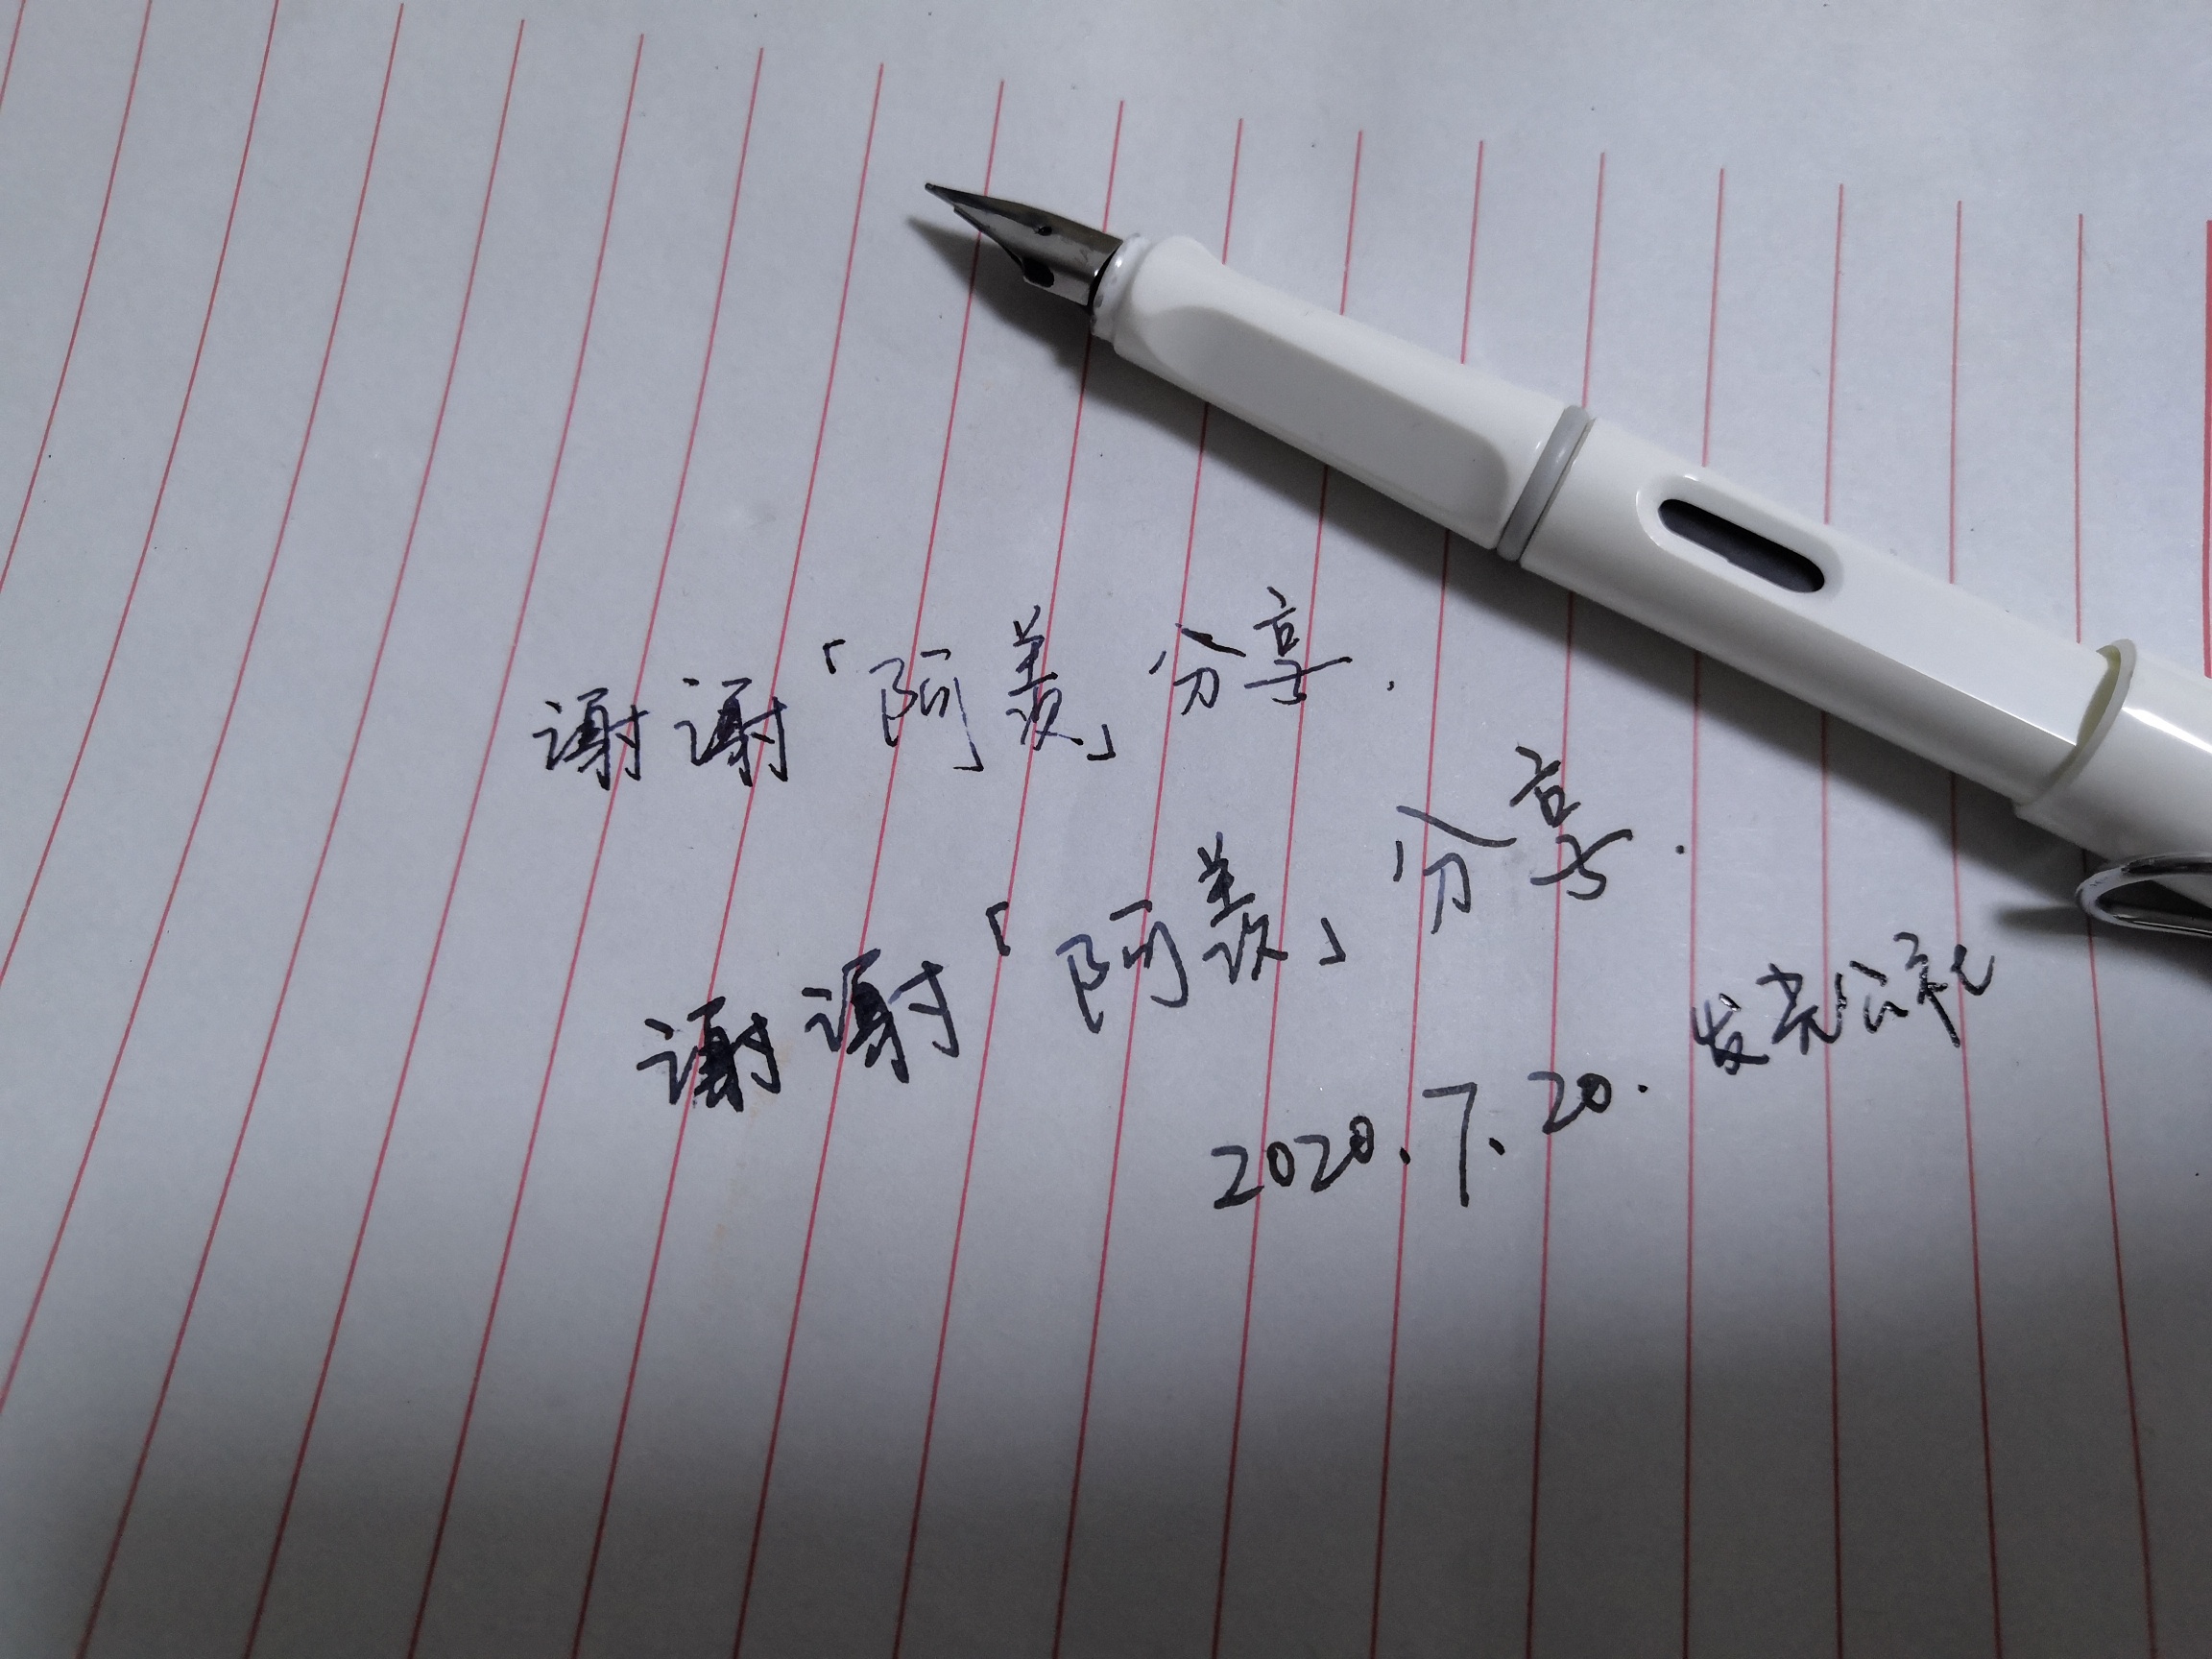 谢谢「阿羡」分享.
谢谢「阿羡」分享.
2020.7.20.发壳公社